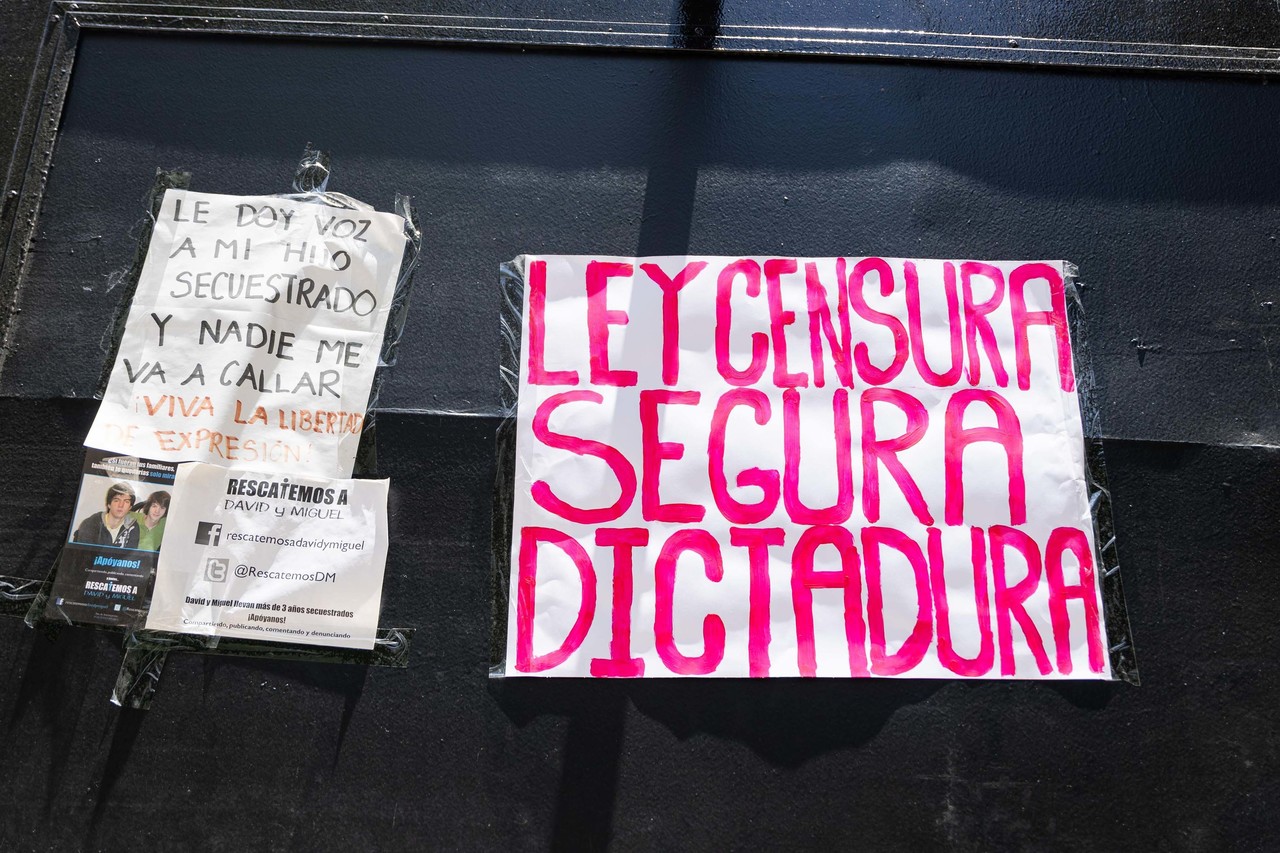 LE DOY VOZ
A MI HIJO
SECUESTRADO
Y NADIE ME
VA A CALLAR
¡VIVA LA LIBERTAD
DE EXPRESIÓN!
¡Apóyanos!
RESCATEMOS A
DAVID y MIGUEL
RESCATEMOS A
DAVID y MIGUEL
f rescatemosadavidymiguel
t @RescatemosDM
David y Miguel llevan más de 3 años secuestrados
¡Apóyanos!
Compartiendo, publicando, comentando y denunciando
LEY CENSURA
SEGURA
DICTADURA